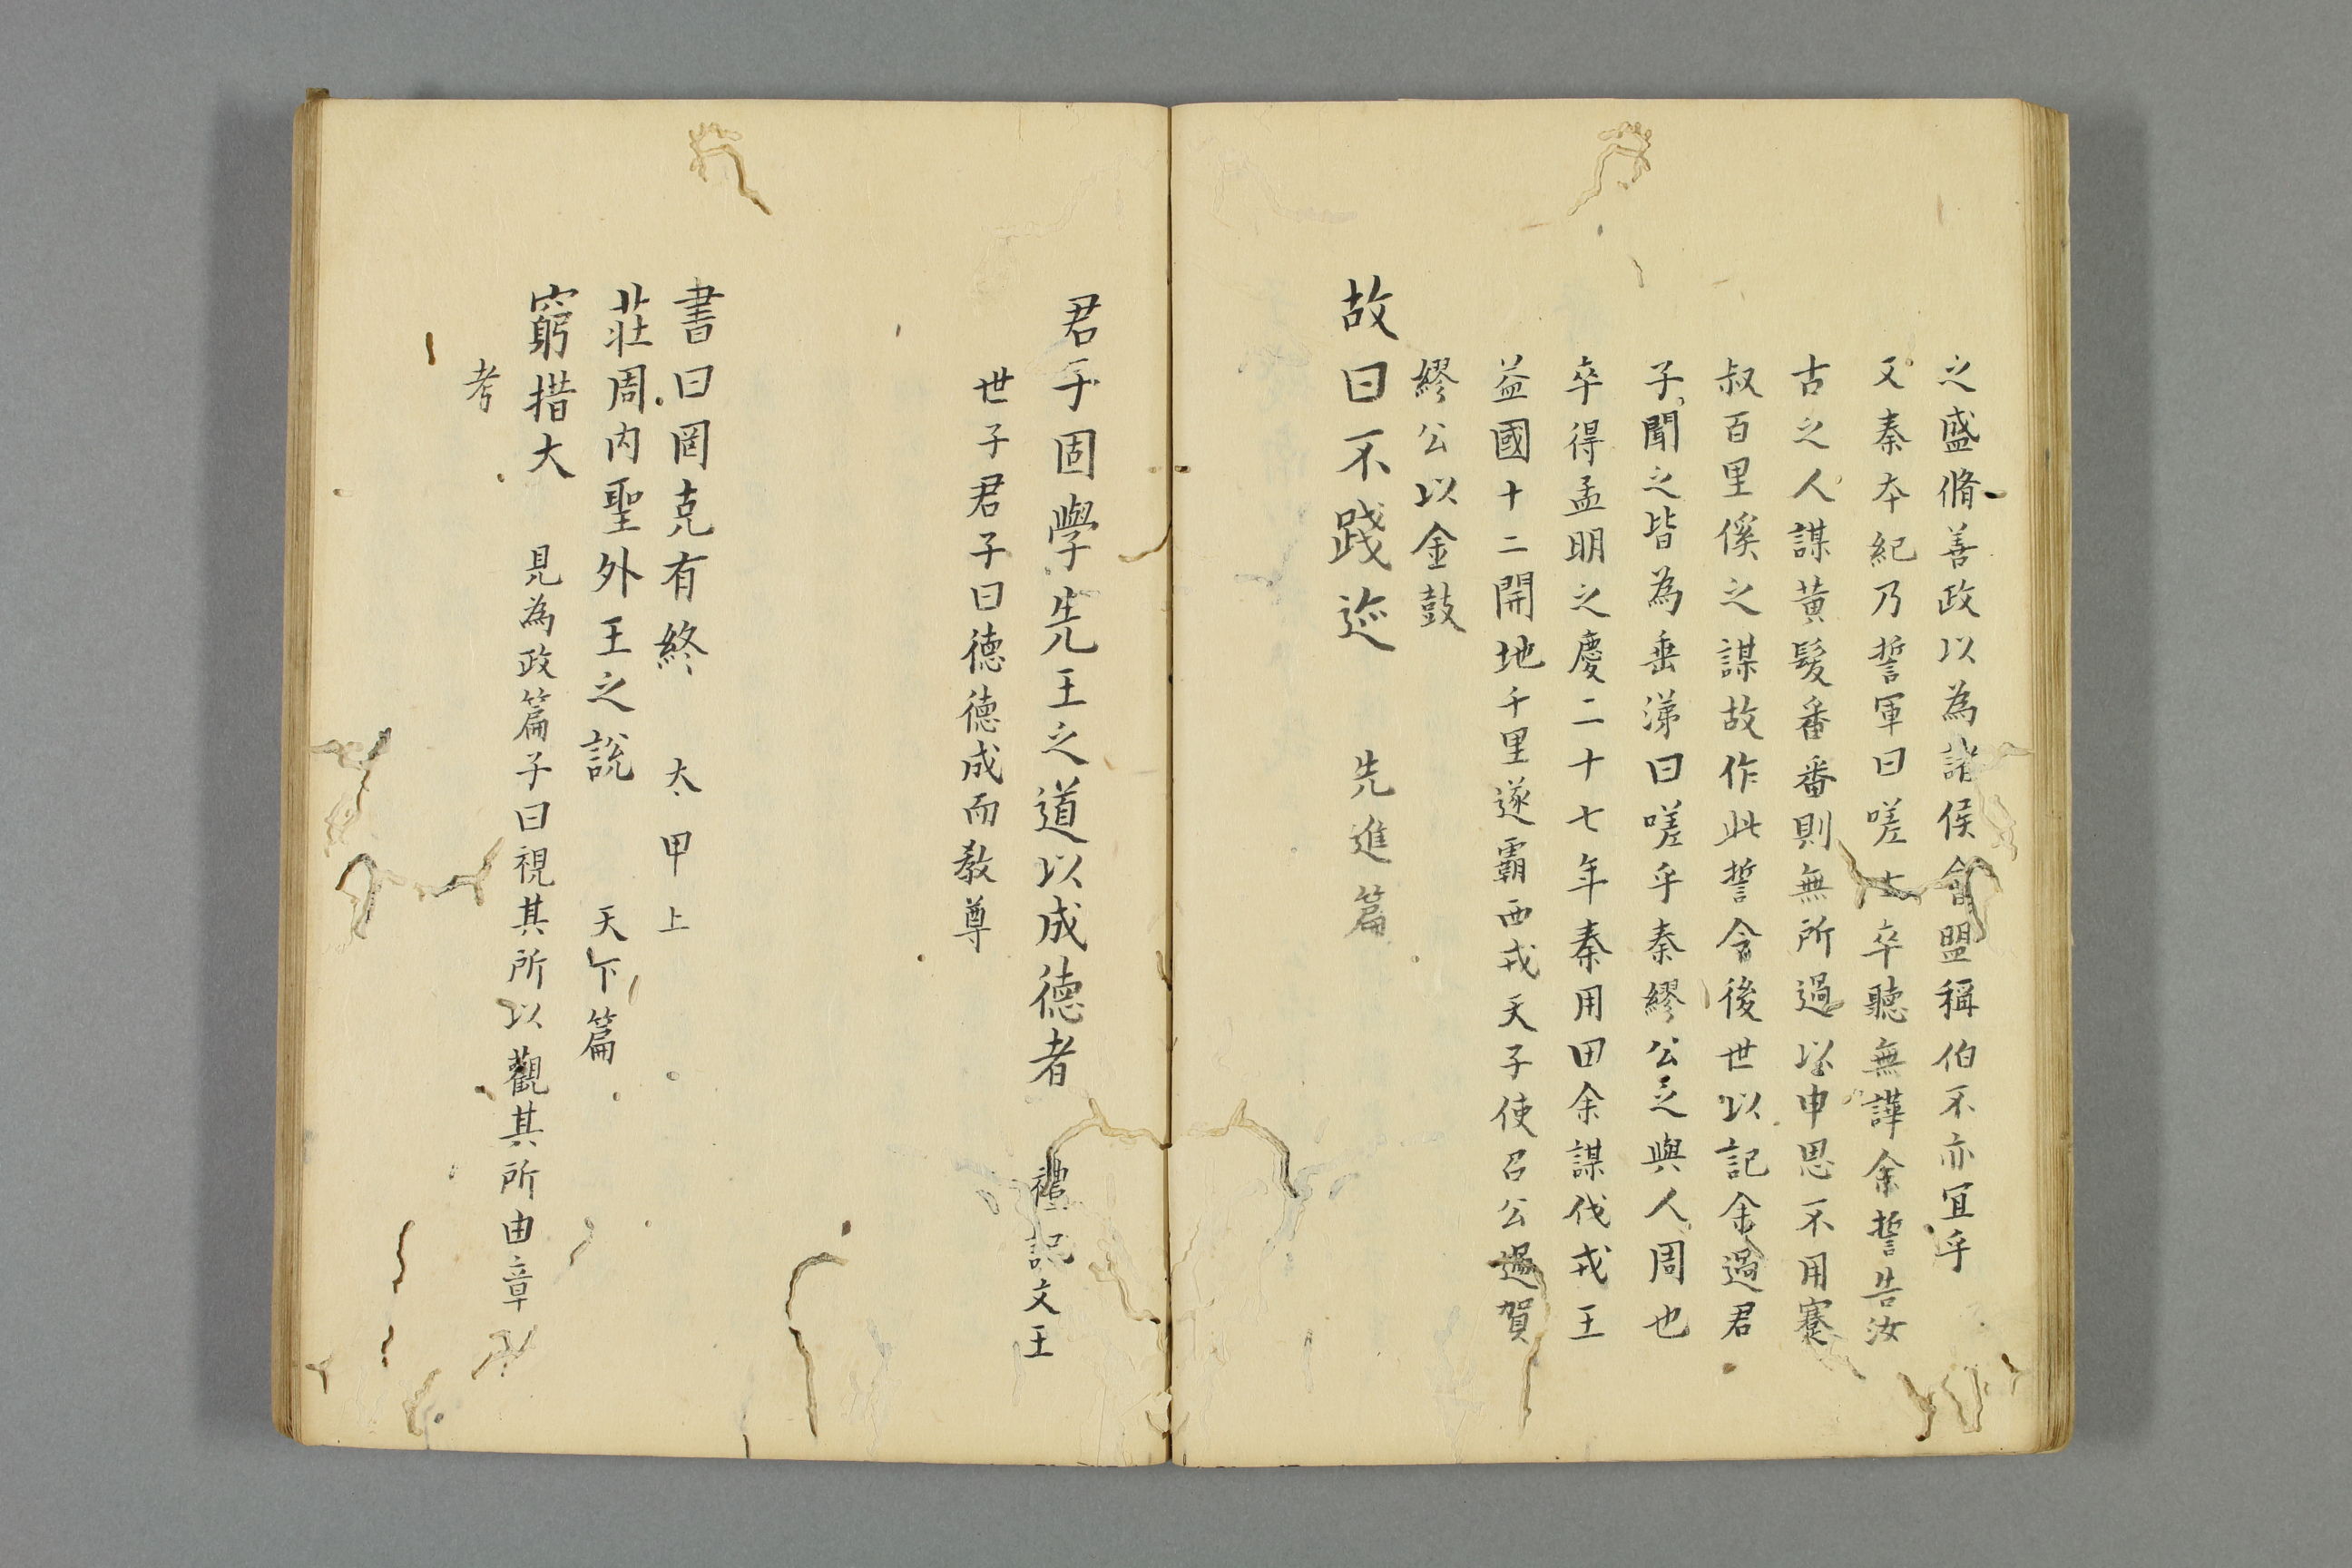 之盛脩善政以為諸侯會盟稱伯不亦宜乎
又秦本紀乃誓軍曰嗟士卒聽無譁余誓告汝
古之人謀黃髮番番則無所過以申思不用蹇
叔百里傒之謀故作此誓令後世以記余過君
子聞之皆為垂涕曰嗟乎秦繆公之與人周也
卒得孟明之慶二十七年秦用田余謀伐戎王
益國十二開地千里遂霸西戎天子使召公過賀
繆公以金鼓
故曰不踐迹　先進篇
君子固學先王之道以成德者　禮記文王
世子君子曰德德成而教尊
書曰罔克有終　太甲上
莊周內聖外王之說　天下篇
窮措大　見為政篇子曰視其所以觀其所由章
考